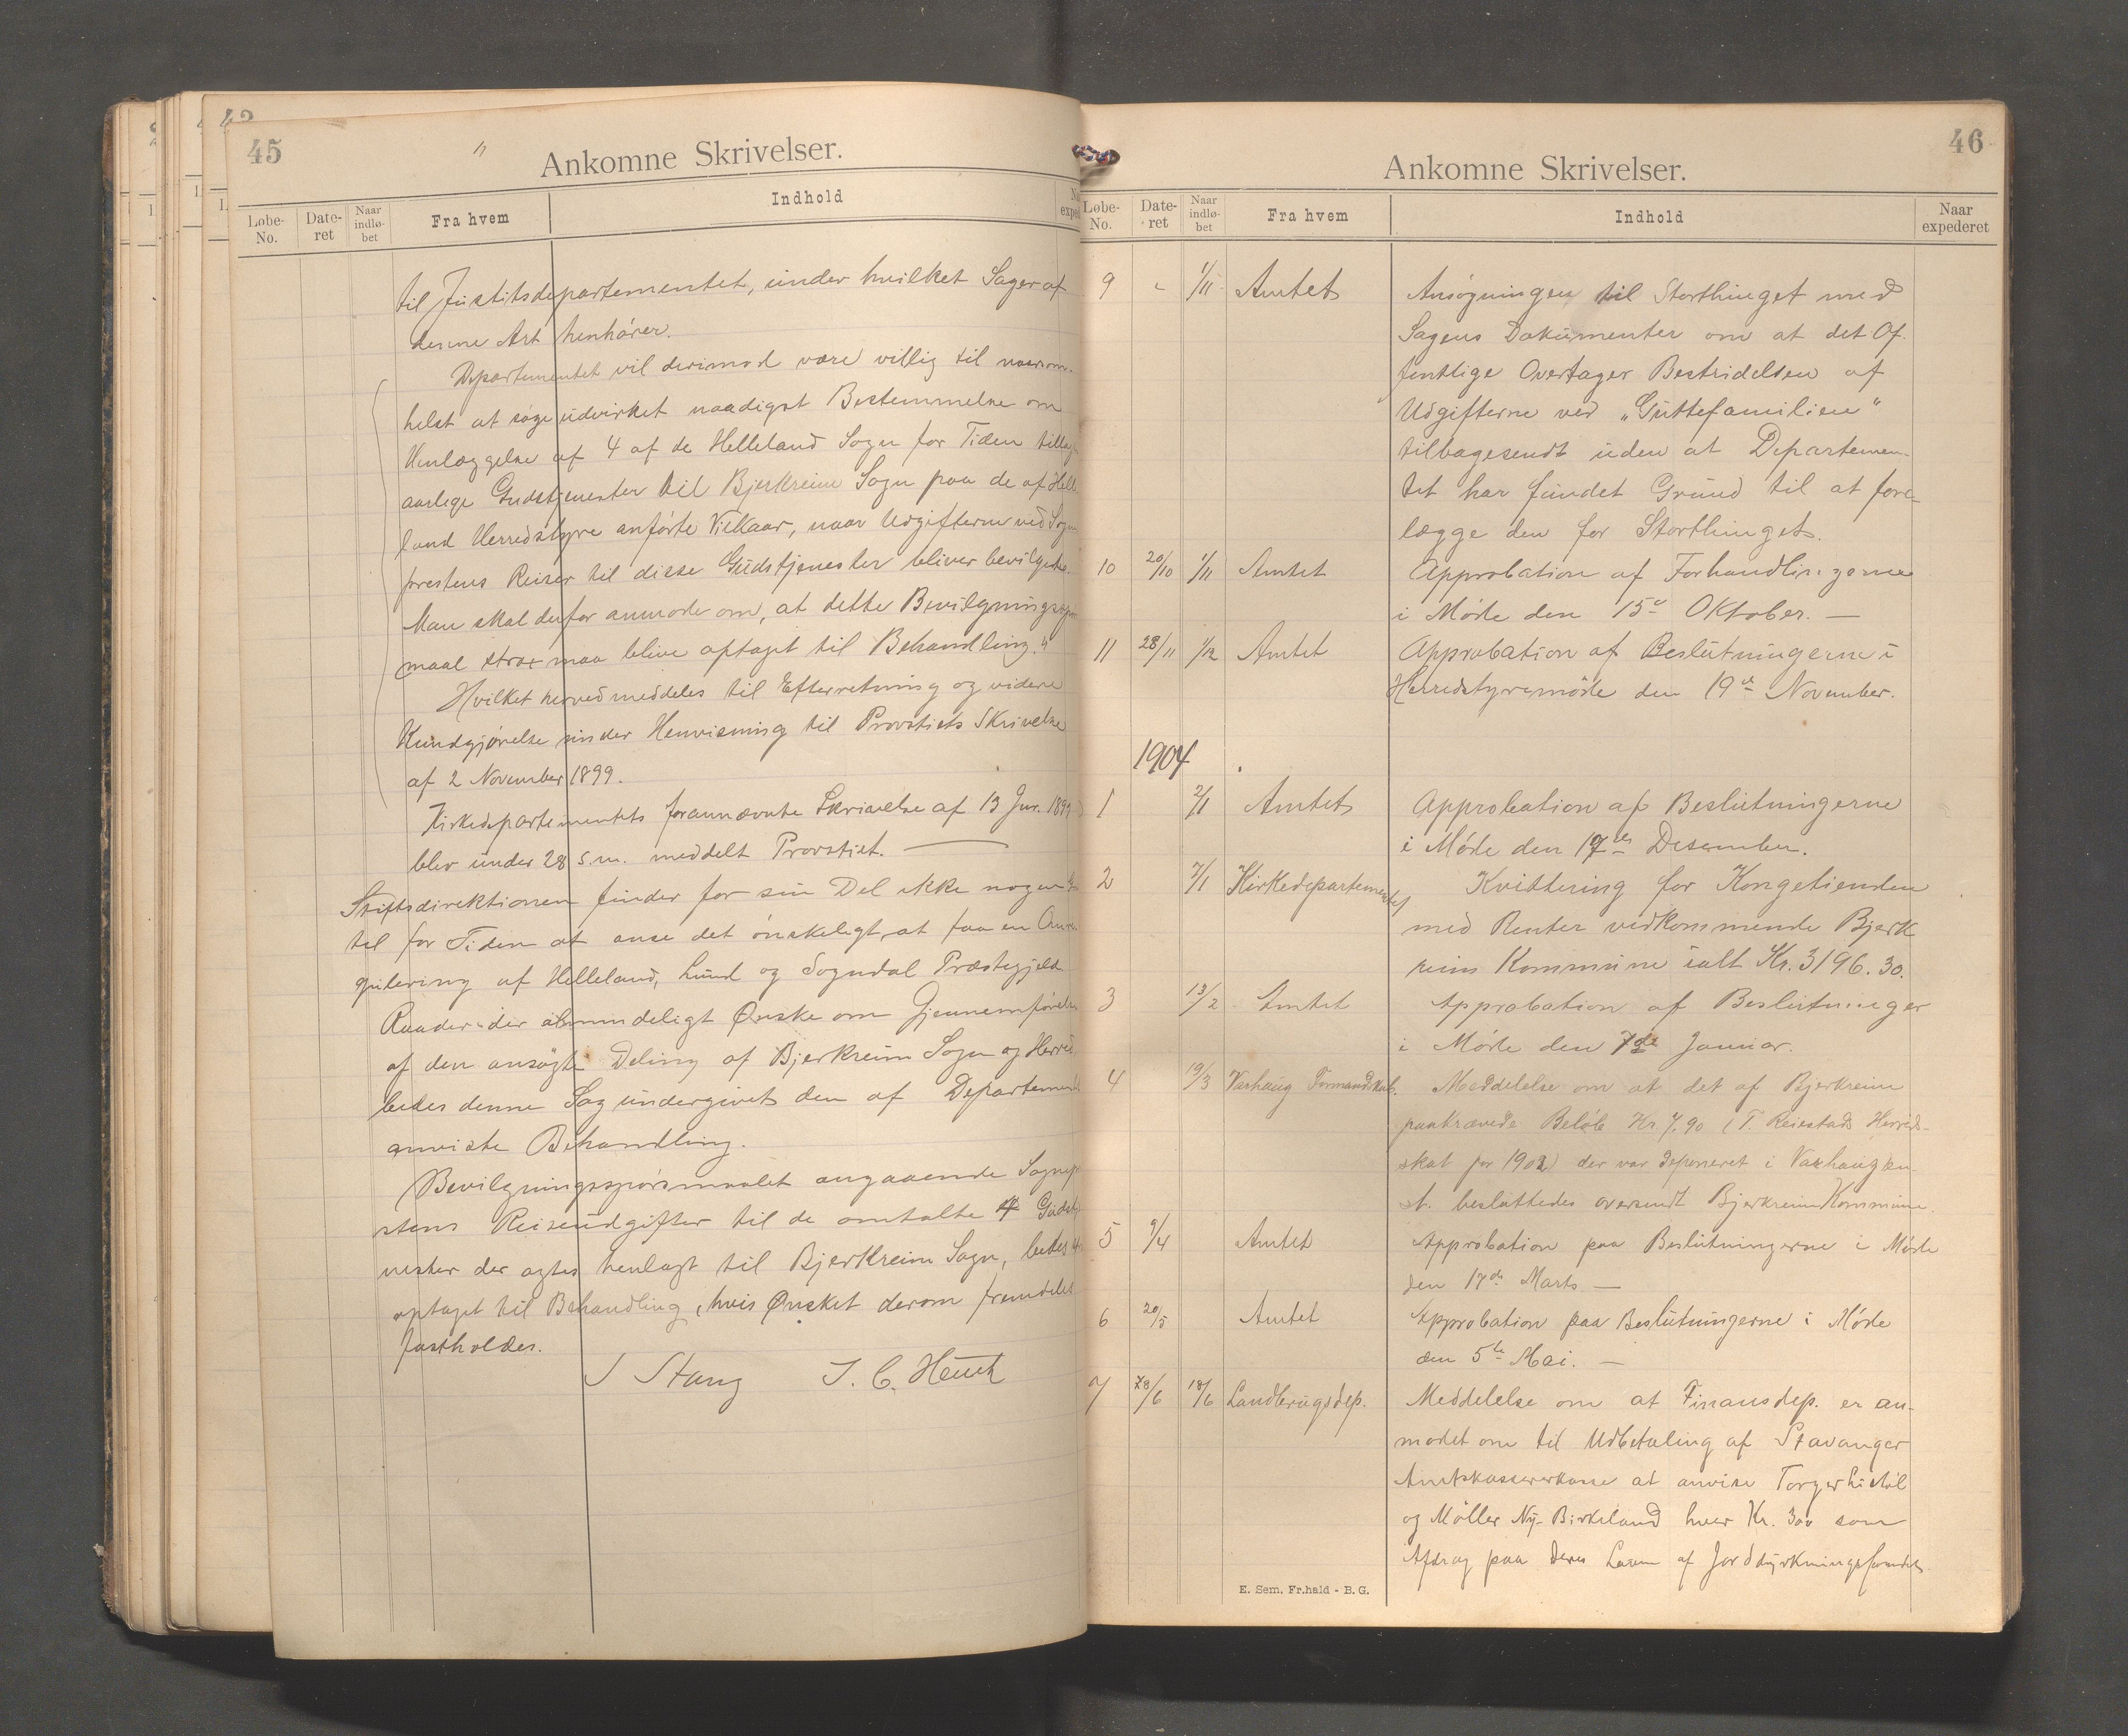 45
Ankomne Skrivelser.
Løbe-No. Date-ret Naar indlø-bet Fra hvem Indhold
til Justitsdepartementet, under hvilket Sager af
denne Art henhører.
Departementet vil derimod være villig til naarsom-
helst at søge udvirket naadigst Bestemmelse om
Henlæggelse af 4 af de Helleland Sogn for Tiden
aarlige Gudstjenester til Bjerkreim Sogn paa de af
land Herredstyre anførte Vilkaar, naar Udgifterne ved
prestens Reiser til disse Gudstjenester bliver bevilgede.
Man skal derfor anmode om, at dette
maal strax maa blive optaget til Behandling."
Hvilket herved meddeles til Efterretning og videre
Kundgjørelse under Henvisning til Provstiets Skrivelse
af 2 November 1899.
Kirkedepartementets forannævnte Skrivelse af 13 Jun. 1899
blev under 28 s.m. meddelt Provstiet.
Stiftsdirektionen finder for sin Del ikke nogen
til for Tiden at anse det ønskeligt at faa en
gulering af Helleland, Lund og Sogndal Præstegjeld
Raader der almindeligt Ønske om Gjennemførelse
af den ansøgte Deling af Bjerkreim Sogn og Herred
bedes denne Sag undergivet den af
anviste Behandling.
Bevilgningsspørsmaalet angaaende
stens Reiseudgifter til de omtalte 4
nester der agtes henlagt til Bjerkreim Sogn, bedes
optaget til Behandling, hvis Ønsket derom fremdeles
fastholdes.
S Stang J. C. Heuch
46
Ankomne Skrivelser.
Løbe-No. Date-ret Naar indlø-bet Fra hvem Indhold Naar expederet
9 " 1/11 Amtet Ansøgningen til Storthinget med
Sagens Dokumenter om at det Of-
fentlige Overtager Bestridelsen af
Udgifterne ved „Guttefamilien"
tilbagesendt uden at Departemen-
tet har fundet Grund til at fore-
lægge den for Storthinget.
10 20/10 1/11 Amtet Approbation af Forhandlingerne
i Møde den 15de Oktober. —
11 28/11 1/12 Amtet Approbation af Beslutningerne i
Herredstyremøde den 19de November.
1904
1 2/1 Amtet Approbation af Beslutningerne
i Møde den 17de Desember.
2 7/1 Kirkedepartementet Kvittering for Kongetienden
med Renter vedkommende Bjerk
reim Kommune ialt Kr. 3196.30.
3 13/2 Amtet Approbation af Beslutninger
i Møde den 7de Januar.
4 19/3 Varhaug Formandskab. Meddelelse om at det af Bjerkreim
paakrævede Beløb Kr. 7.90 (T. Reiestads Herreds-
skat for 1902) der var deponeret i Varhaug
besluttedes oversendt Bjerkreim Kommune.
5 9/4 Amtet Approbation paa Beslutningerne i Møde
den 17de Marts —
6 20/5 Amtet Approbation paa Beslutningerne i Møde
den 5te Mai. —
7 18/6 Landbrugsdep. Meddelelse om at Finansdep. er an-
modet om til Udbetaling af Stavanger
Amtskassererkasse at anvise Torger
og Møller Ny-Birkeland hver Kr. 300 som
Afdrag paa deres Laan af Jorddyrkningsfondet.
E. Sem. Fr.hald - B.G.